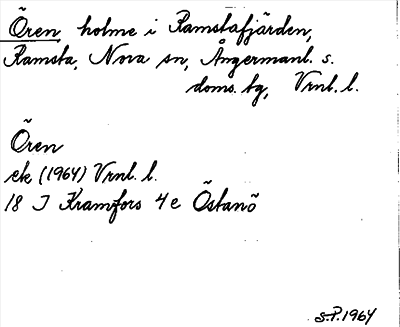 Ören, holme i Ramstafjärden,
Ramsta, Nora sn, Ångermanl. s.
doms. tg, Vrnl. l.
Ören
ek (1964) Vrnl. l.
18 J Kramfors 4 e Östanö
S.P. 1964